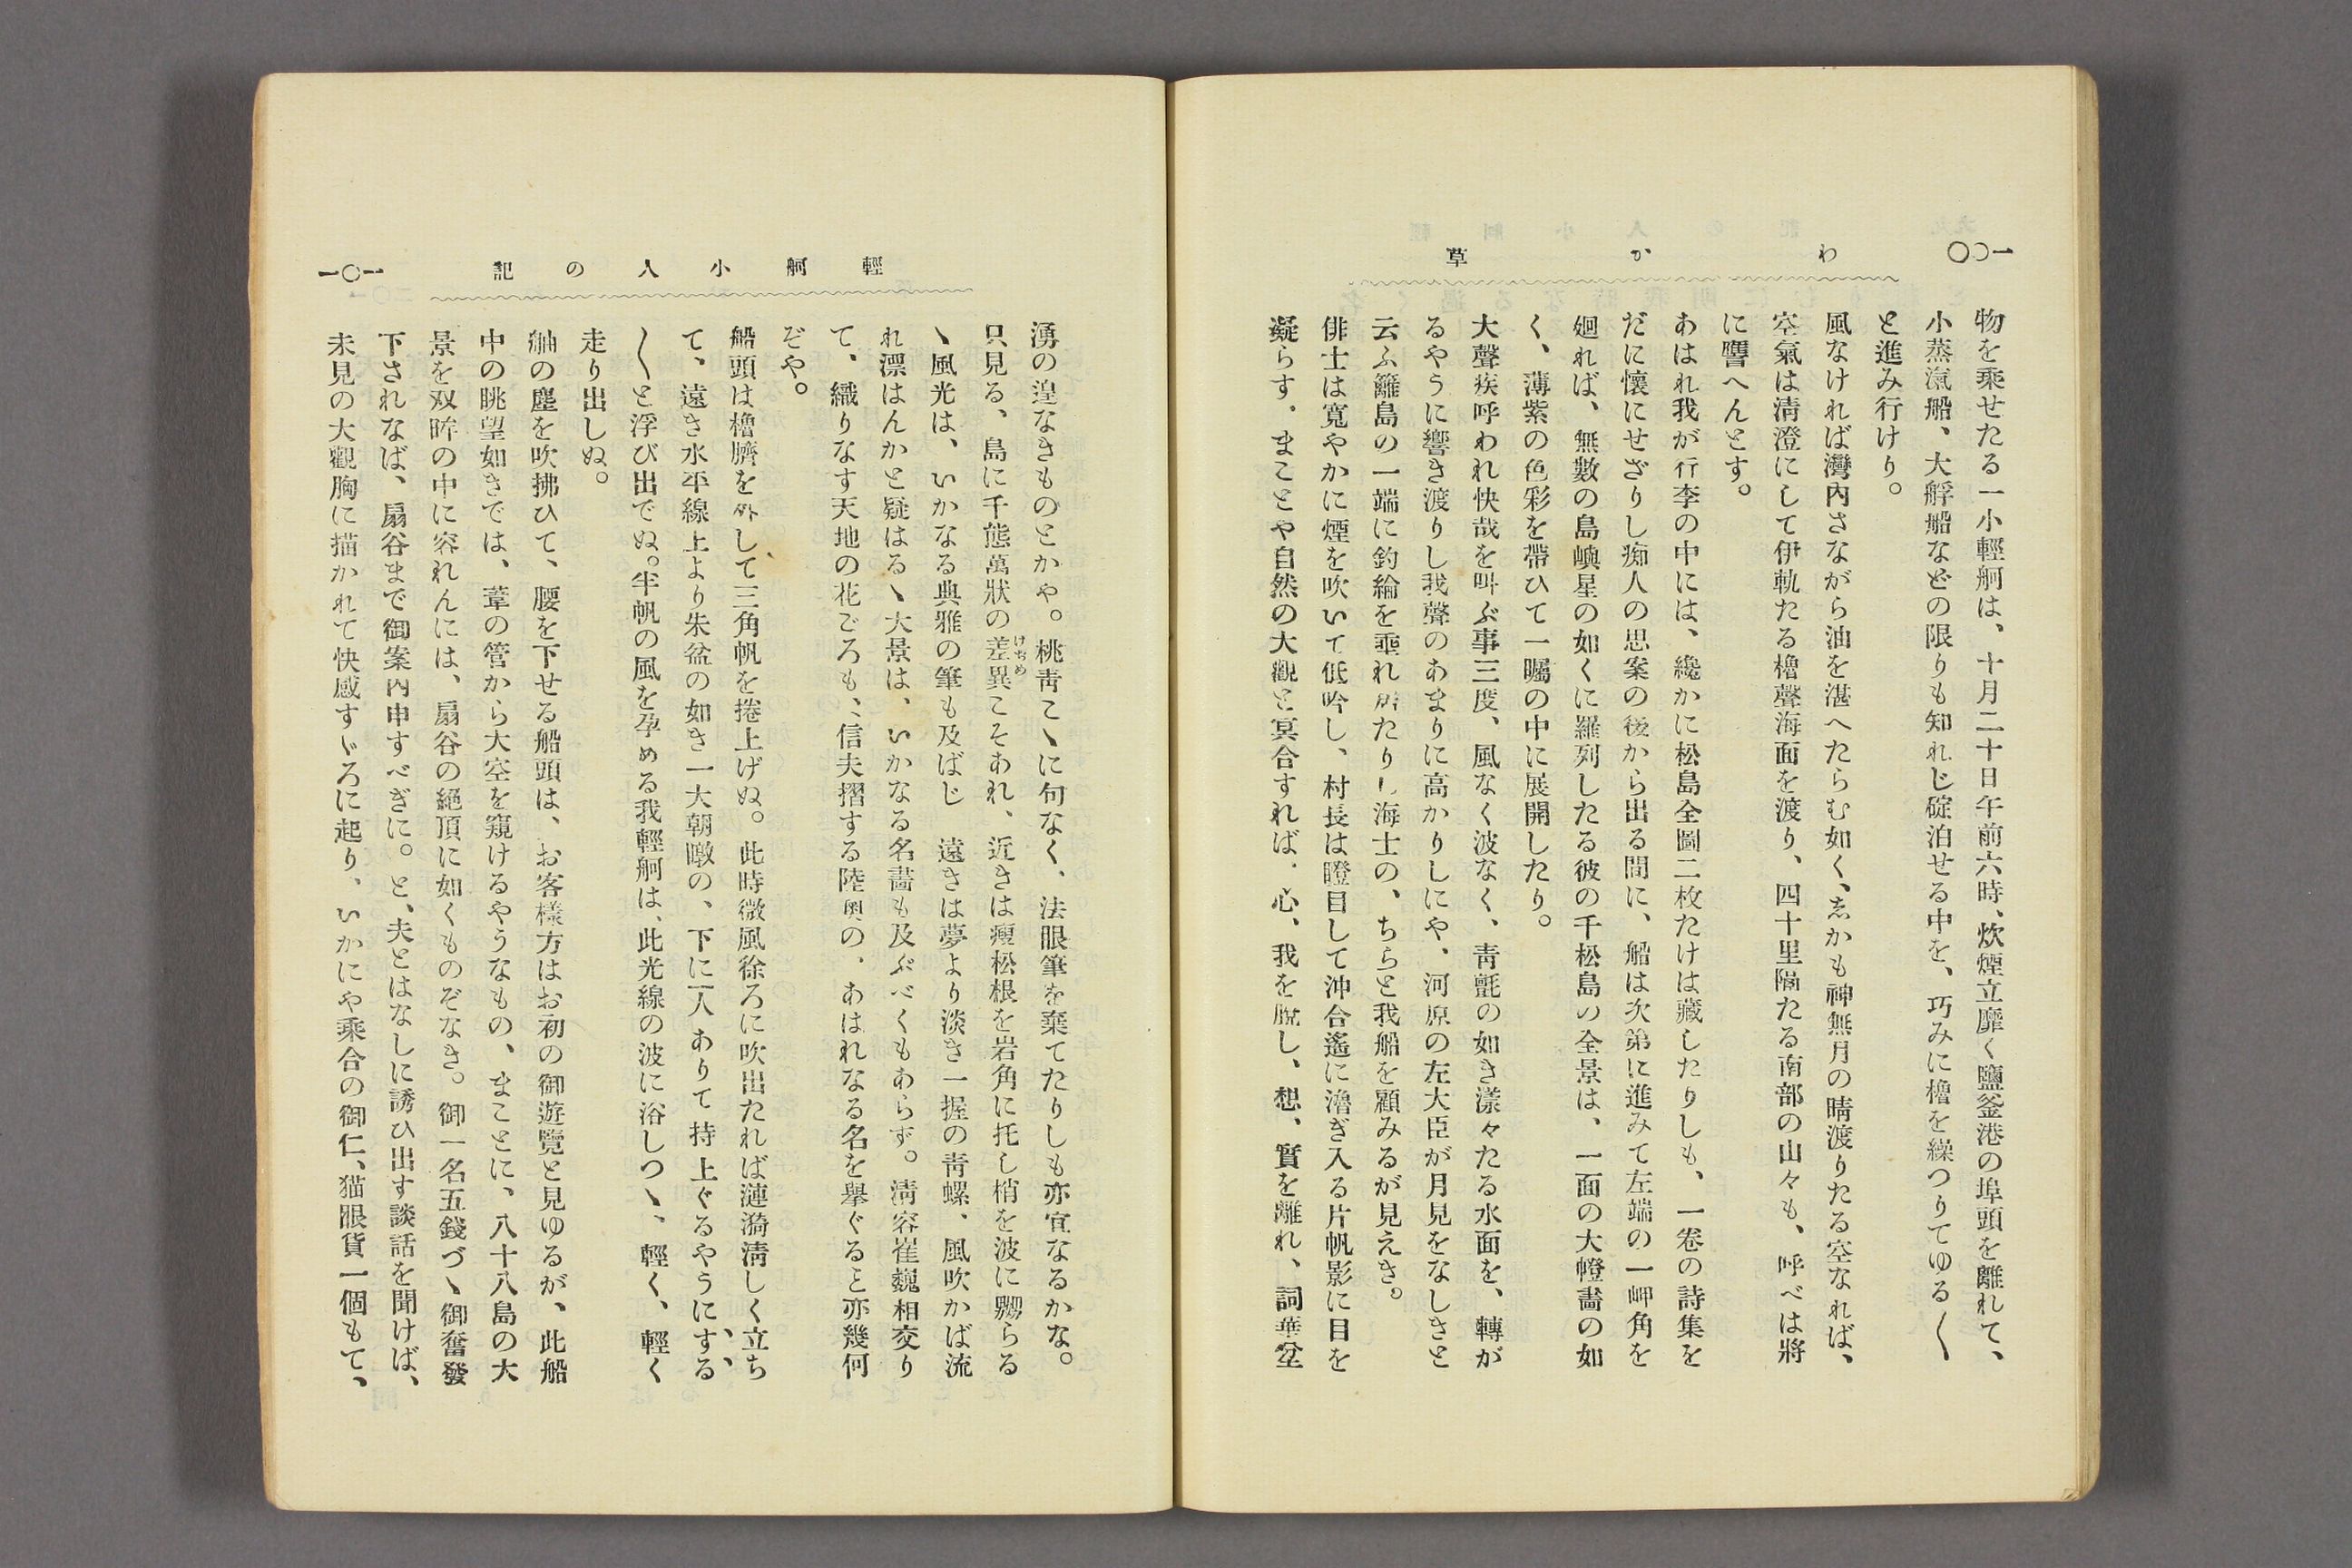 一〇〇
わか草
物を乘せたる一小輕舸は、十月二十日午前六時、炊煙立靡く鹽釜港の埠頭を離れて、
小蒸滊船、大艀船などの限りも知れじ碇泊せる中を、巧みに櫓を繰つりてゆる〱
と進み行けり。
風なければ灣內さながら油を湛へたらむ如く、志かも神無月の晴渡りたる空なれば、
空氣は淸澄にして伊軋たる櫓聲海面を渡り、四十里隔たる南部の山々も、呼べは將
に譍へんとす。
あはれ我が行李の中には、纔かに松島全圖二枚たけは藏したりしも、一卷の詩集を
だに懷にせざりし痴人の思案の後から出る間に、船は次第に進みて左端の一岬角を
廻れば、無數の島嶼星の如くに羅列したる彼の千松島の全景は、一面の大幀畵の如
く、薄紫の色彩を帶ひて一矚の中に展開したり。
大聲疾呼われ快哉を叫ぶ事三度、風なく波なく、靑氈の如き漾々たる水面を、轉が
るやうに響き渡りし我聲のあまりに高かりしにや、河原の左大臣が月見をなしきと
云ふ籬島の一端に釣綸を垂れ居たりし海士の、ちらと我船を顧みるが見えき。
俳士は寬やかに煙を吹いて低吟し、村長は瞪目して沖合遙に漕ぎ入る片帆影に目を
凝らす、まことや自然の大觀と冥合すれば、心、我を脫し、想、實を離れ、詞華坌
輕舸小人の記
一〇一
湧の遑なきものとかや。桃靑こゝに句なく、法眼筆を棄てたりしも亦宜なるかな。
只見る、島に千態萬狀の差異けぢめこそあれ、近きは瘦松根を岩角に托し梢を波に嬲らる
ゝ風光は、いかなる典雅の筆も及ばじ　遠きは夢より淡き一握の靑螺、風吹かば流
れ漂はんかと疑はるゝ大景は、いかなる名畵も及ぶべくもあらず。淸容崔巍相交り
て、織りなす天地の花ごろも、信夫摺する陸奧の、あはれなる名を擧ぐると亦幾何
ぞや。
船頭は櫓臍を外して三角帆を捲上げぬ。此時微風徐ろに吹出たれば漣漪淸しく立ち
て、遠き水平線上より朱盆の如き一大朝暾の、下に人ありて持上ぐるやうにする
〱と浮び出でぬ。半帆の風を孕める我輕舸は、此光線の波に浴しつゝ、輕く、輕く
走り出しぬ。
舳の塵を吹拂ひて、腰を下せる船頭は、お客樣方はお初の御遊覽と見ゆるが、此船
中の眺望如きでは、葦の管から大空を窺けるやうなもの、まことに、八十八島の大
景を双眸の中に容れんには、扇谷の絕頂に如くものぞなき。御一名五錢づゝ御奮發
下されなば、扇谷まで御案內申すべきに。と、夫とはなしに誘ひ出す談話を聞けば、
未見の大觀胸に描かれて快感すゞろに起り、いかにや乘合の御仁、猫眼貨一個もて、